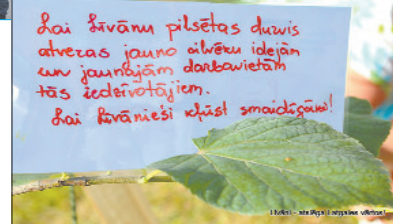 Lai Līvānu pilsētas durvis
atveras jauno cilvēku idejām
un jaunajām darbavietām
tās iedzīvotājiem.
Lai līvānieši kļūst smaidīgāki!
Līvāni - atslēga Latgales vārtos!